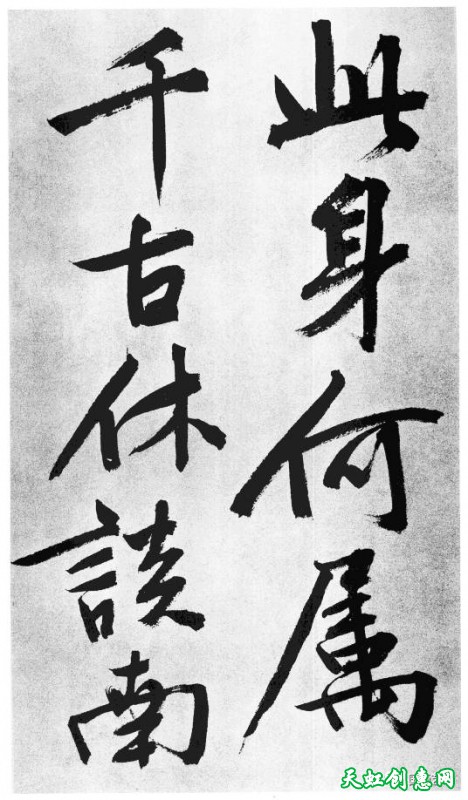 此身何属
千古休談南
天虹创惠网